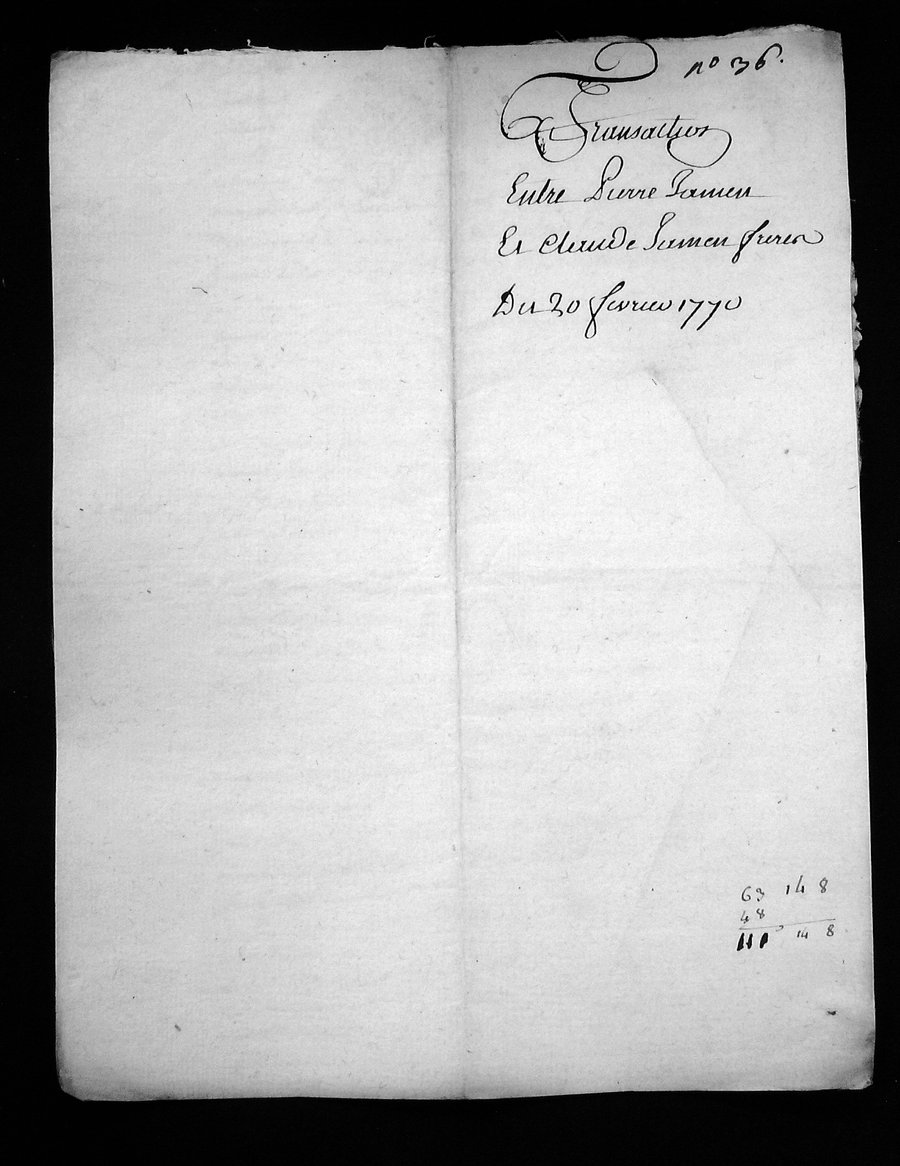 n° 36.
Transaction
Entre Pierre Jamen
Et Claude Jamen freres
Du 20 fevrier 1770
63 14 8
48
111 14 8